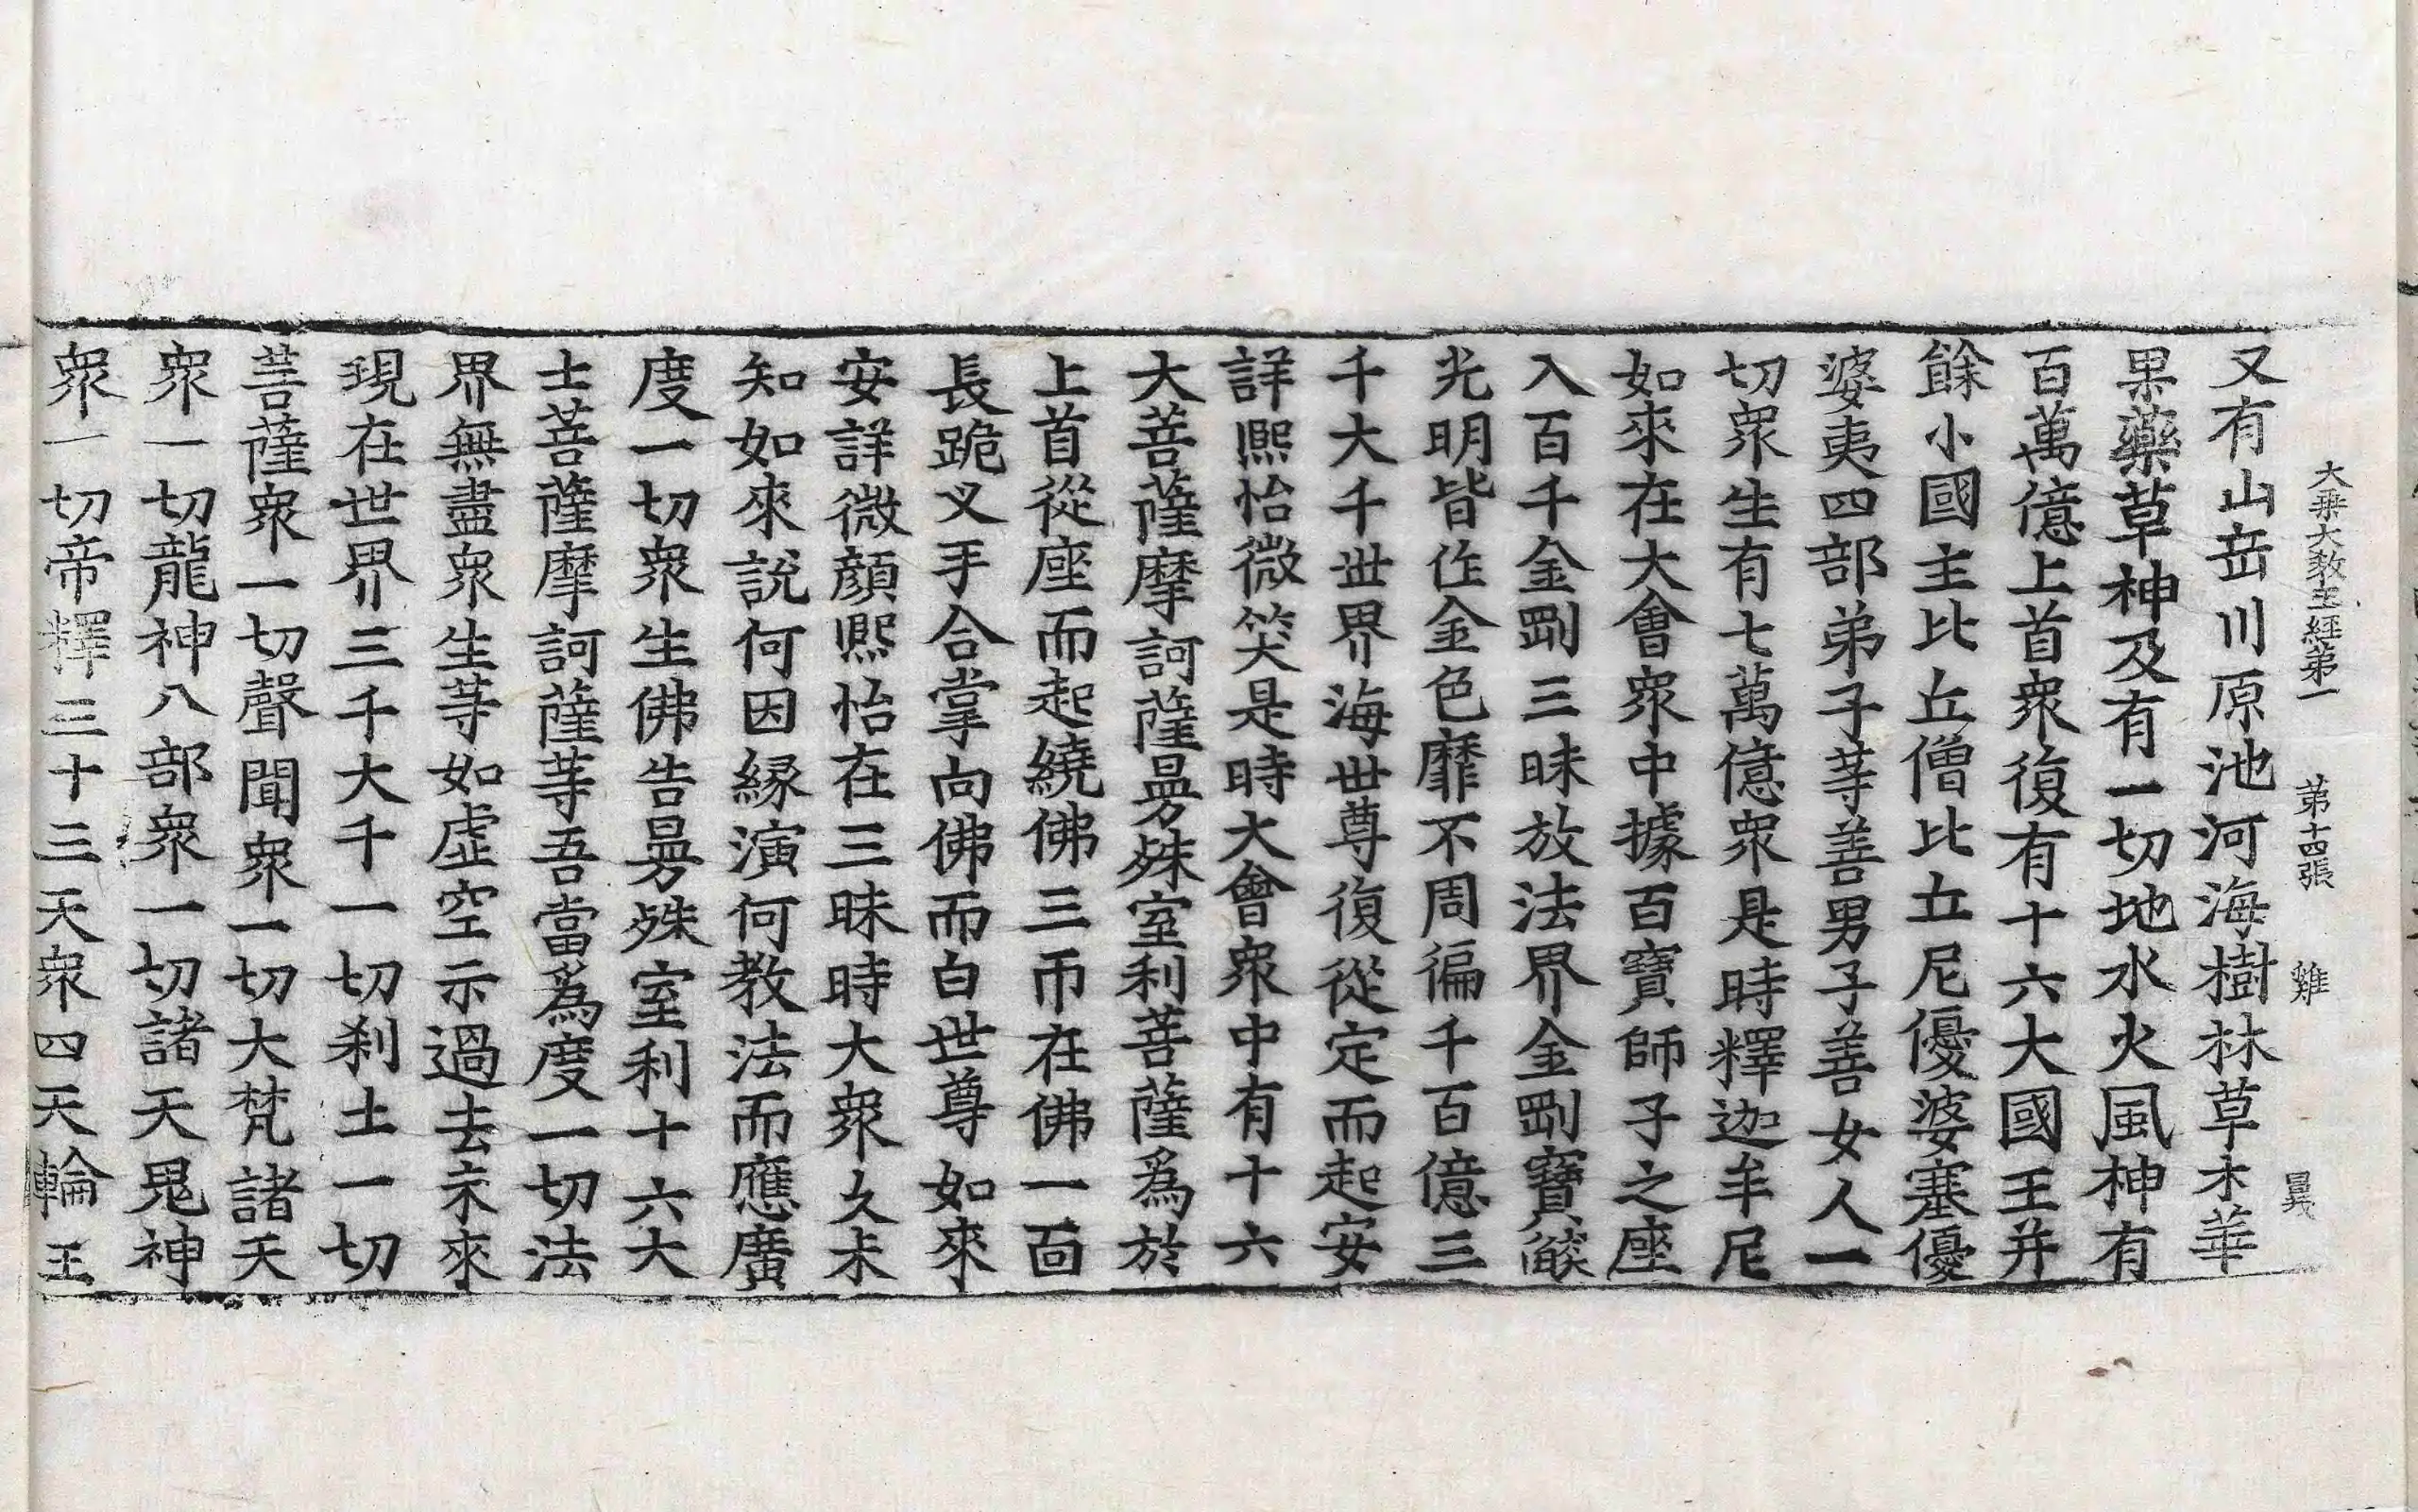 大乗大教王經第一 第十四張 雞
又有山岳川原池河海樹林草木華
果藥草神及有一切地水火風神有
百萬億上首衆復有十六大國王并
餘小國主比丘僧比丘尼優婆塞優
婆夷四部弟子䓁善男子善女人一
切衆生有七萬億衆是時釋迦牟尼
如來在大會衆中據百寶師子之座
入百千金剛三昧放法界金剛寶燄
光明皆作金色靡不周徧千百億三
千大千世界海世尊復從定而起安
詳熈怡微笑是時大會衆中有十六
大菩薩摩訶薩曼殊室利菩薩爲於
上首從座而起繞佛三帀在佛一面
長跪叉手合掌向佛而白世尊如來
安詳微顔熈怡在三昧時大衆久未
知如來說何因緣演何教法而應廣
度一切衆生佛告曼殊室利十六大
士菩薩摩訶薩䓁吾當爲度一切法
界無盡衆生䓁如虛空示過去未來
現在世界三千大千一切刹土一切
菩薩衆一切聲聞衆一切大梵諸天
衆一切龍神八部衆一切諸天鬼神
衆一切帝釋三十三天衆四天輪王